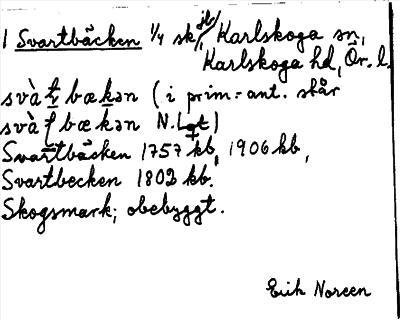 1 Svartbäcken 1/4 sk Karlskoga sn,
Karlskoga hd, Ör. l.
bækən (i prim.-ant. står
bækən N.
Svartbäcken 1757 kb, 1906 kb,
Svartbecken 1802 kb.
Skogsmark; obebyggt.
Erik Noreen